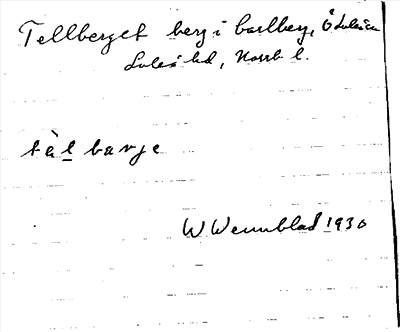 Tellberget berg i Carlberg, Ö Luleån
Luleå hd, Norrb l.
tèl barje
W Wennblad 1930